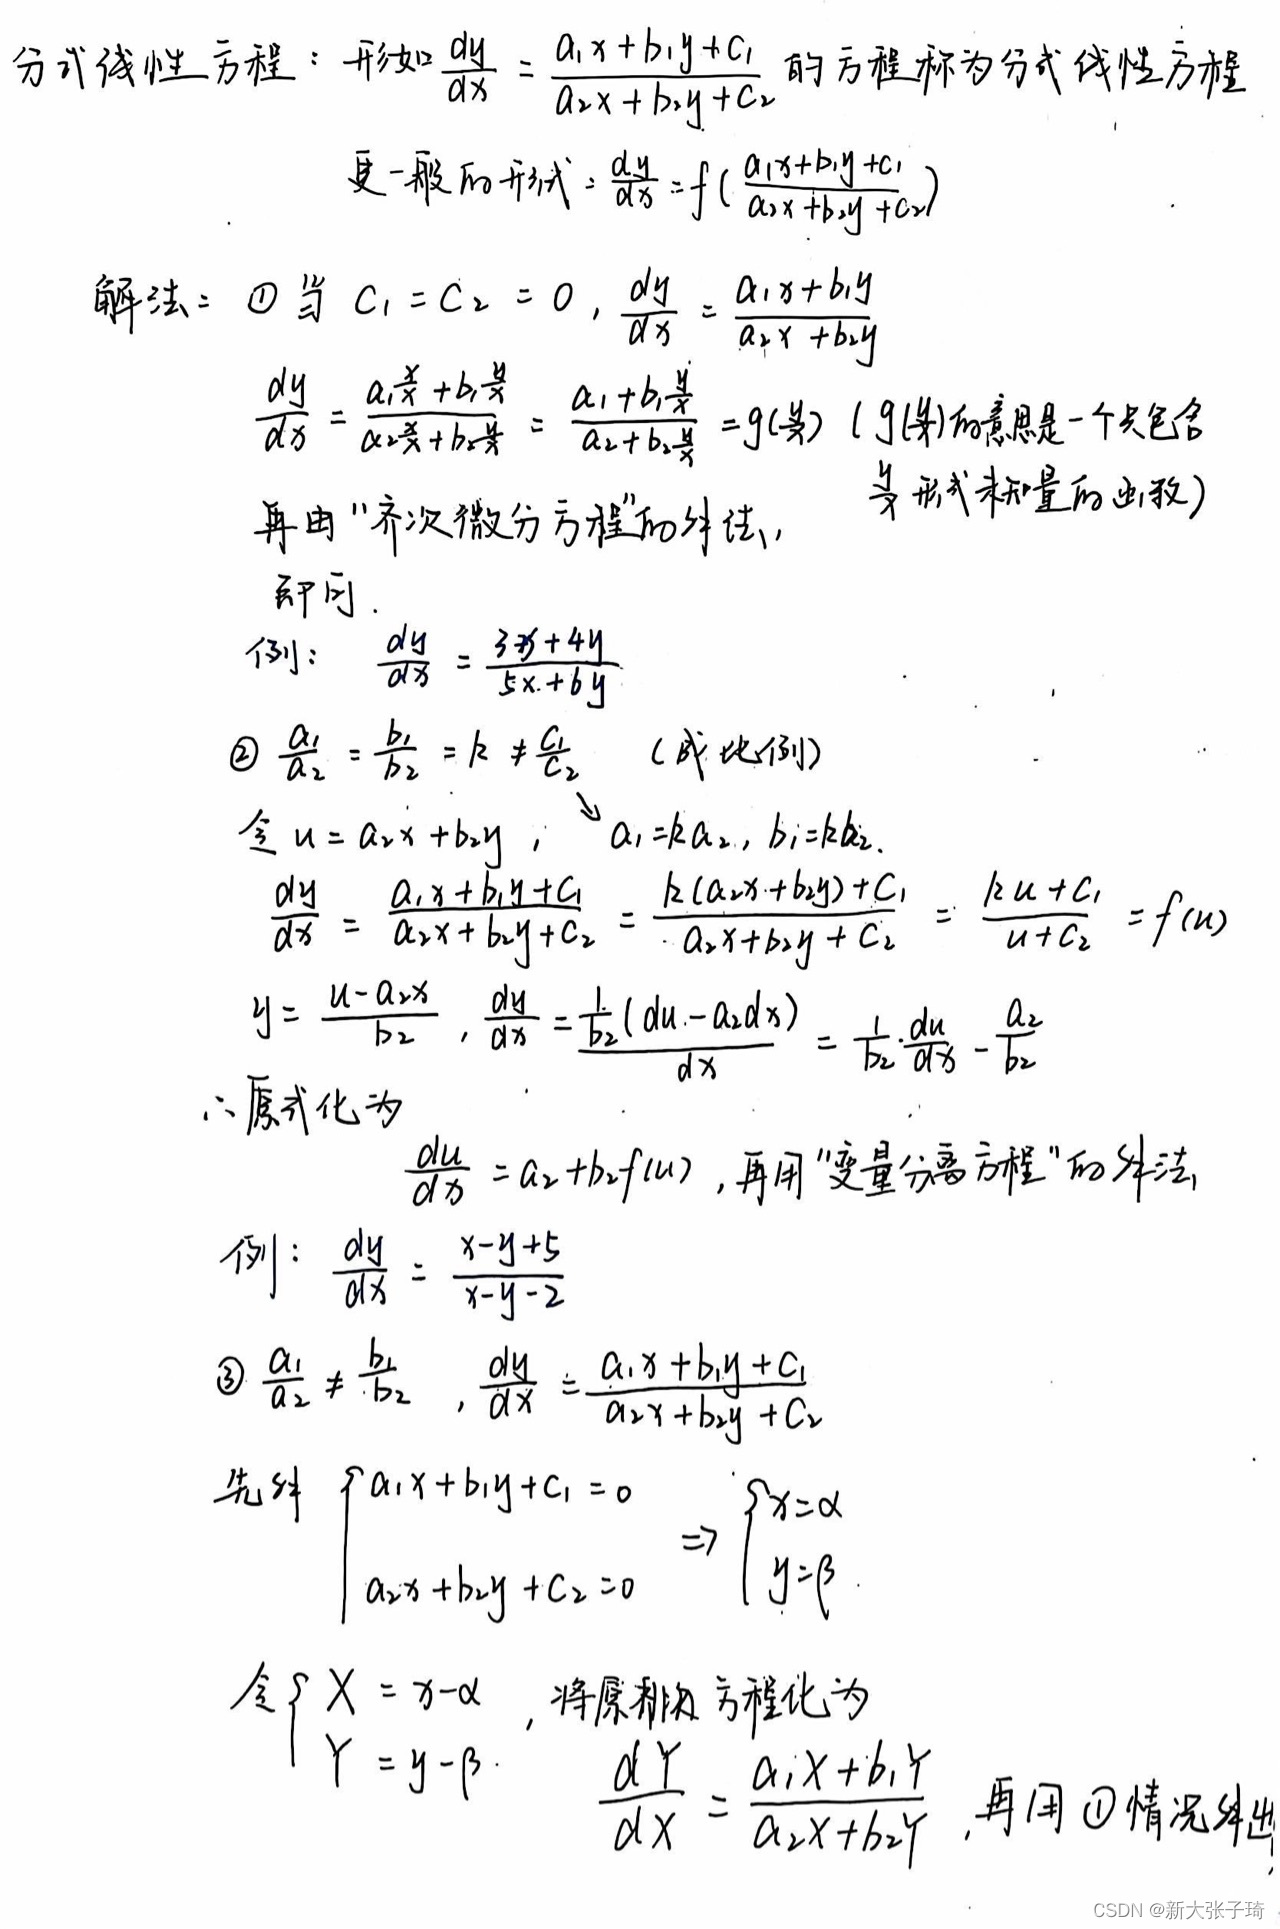 分式线性方程：形如 dy/dx = (a₁x+b₁y+c₁)/(a₂x+b₂y+c₂) 的方程称为分式线性方程
更一般的形式：dy/dx = f((a₁x+b₁y+c₁)/(a₂x+b₂y+c₂))
解法： ① 当 C₁ = C₂ = 0 , dy/dx = (a₁x+b₁y)/(a₂x+b₂y)
dy/dx = (a₁ x/x + b₁ y/x)/(a₂ x/x + b₂ y/x) = (a₁+b₁ y/x)/(a₂+b₂ y/x) = g(y/x) ( g(y/x)的意思是一个只包含
y/x 形式未知量的函数)
再由"齐次微分方程"的解法,
即可.
例： dy/dx = (3x+4y)/(5x+6y)
② a₁/a₂ = b₁/b₂ = k ≠ c₁/c₂ （成比例）
令 u = a₂x+b₂y , ↘ a₁=ka₂, b₁=kb₂.
dy/dx = (a₁x+b₁y+C₁)/(a₂x+b₂y+C₂) = (k(a₂x+b₂y)+C₁)/(a₂x+b₂y+C₂) = (ku+C₁)/(u+C₂) = f(u)
y = (u-a₂x)/b₂ , dy/dx = (1/b₂ (du-a₂dx))/dx = 1/b₂ · du/dx - a₂/b₂
∴ 原式化为
du/dx = a₂+b₂f(u) , 再用"变量分离方程"的解法
例： dy/dx = (x-y+5)/(x-y-2)
③ a₁/a₂ ≠ b₁/b₂ , dy/dx = (a₁x+b₁y+C₁)/(a₂x+b₂y+C₂)
先解 { a₁x+b₁y+C₁=0 ⇒ { x=α
a₂x+b₂y+C₂=0 y=β
令 { X = x-α , 将原 方程化为
Y = y-β.
dY/dX = (a₁X+b₁Y)/(a₂X+b₂Y) , 再用①情况解出
CSDN @新大张子琦